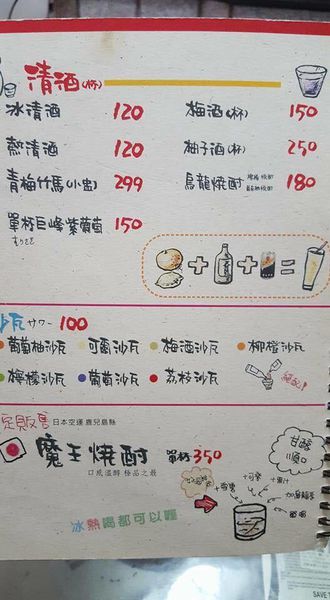 清酒(杯)
冰清酒 120
梅酒(杯) 150
熱清酒 120
柚子酒(杯) 250
青梅竹馬(小壺) 299
烏龍燒酎 180
單杯巨峰紫葡萄 150
沙瓦 サワー 100
葡萄柚沙瓦 可爾沙瓦 梅酒沙瓦 柳橙沙瓦
檸檬沙瓦 葡萄沙瓦 荔枝沙瓦
絕配!
定販售 日本空運 鹿兒島縣
魔王燒酎 單杯350
口感溫醇 極品之最
甘醇
順口
冰熱喝都可以喔